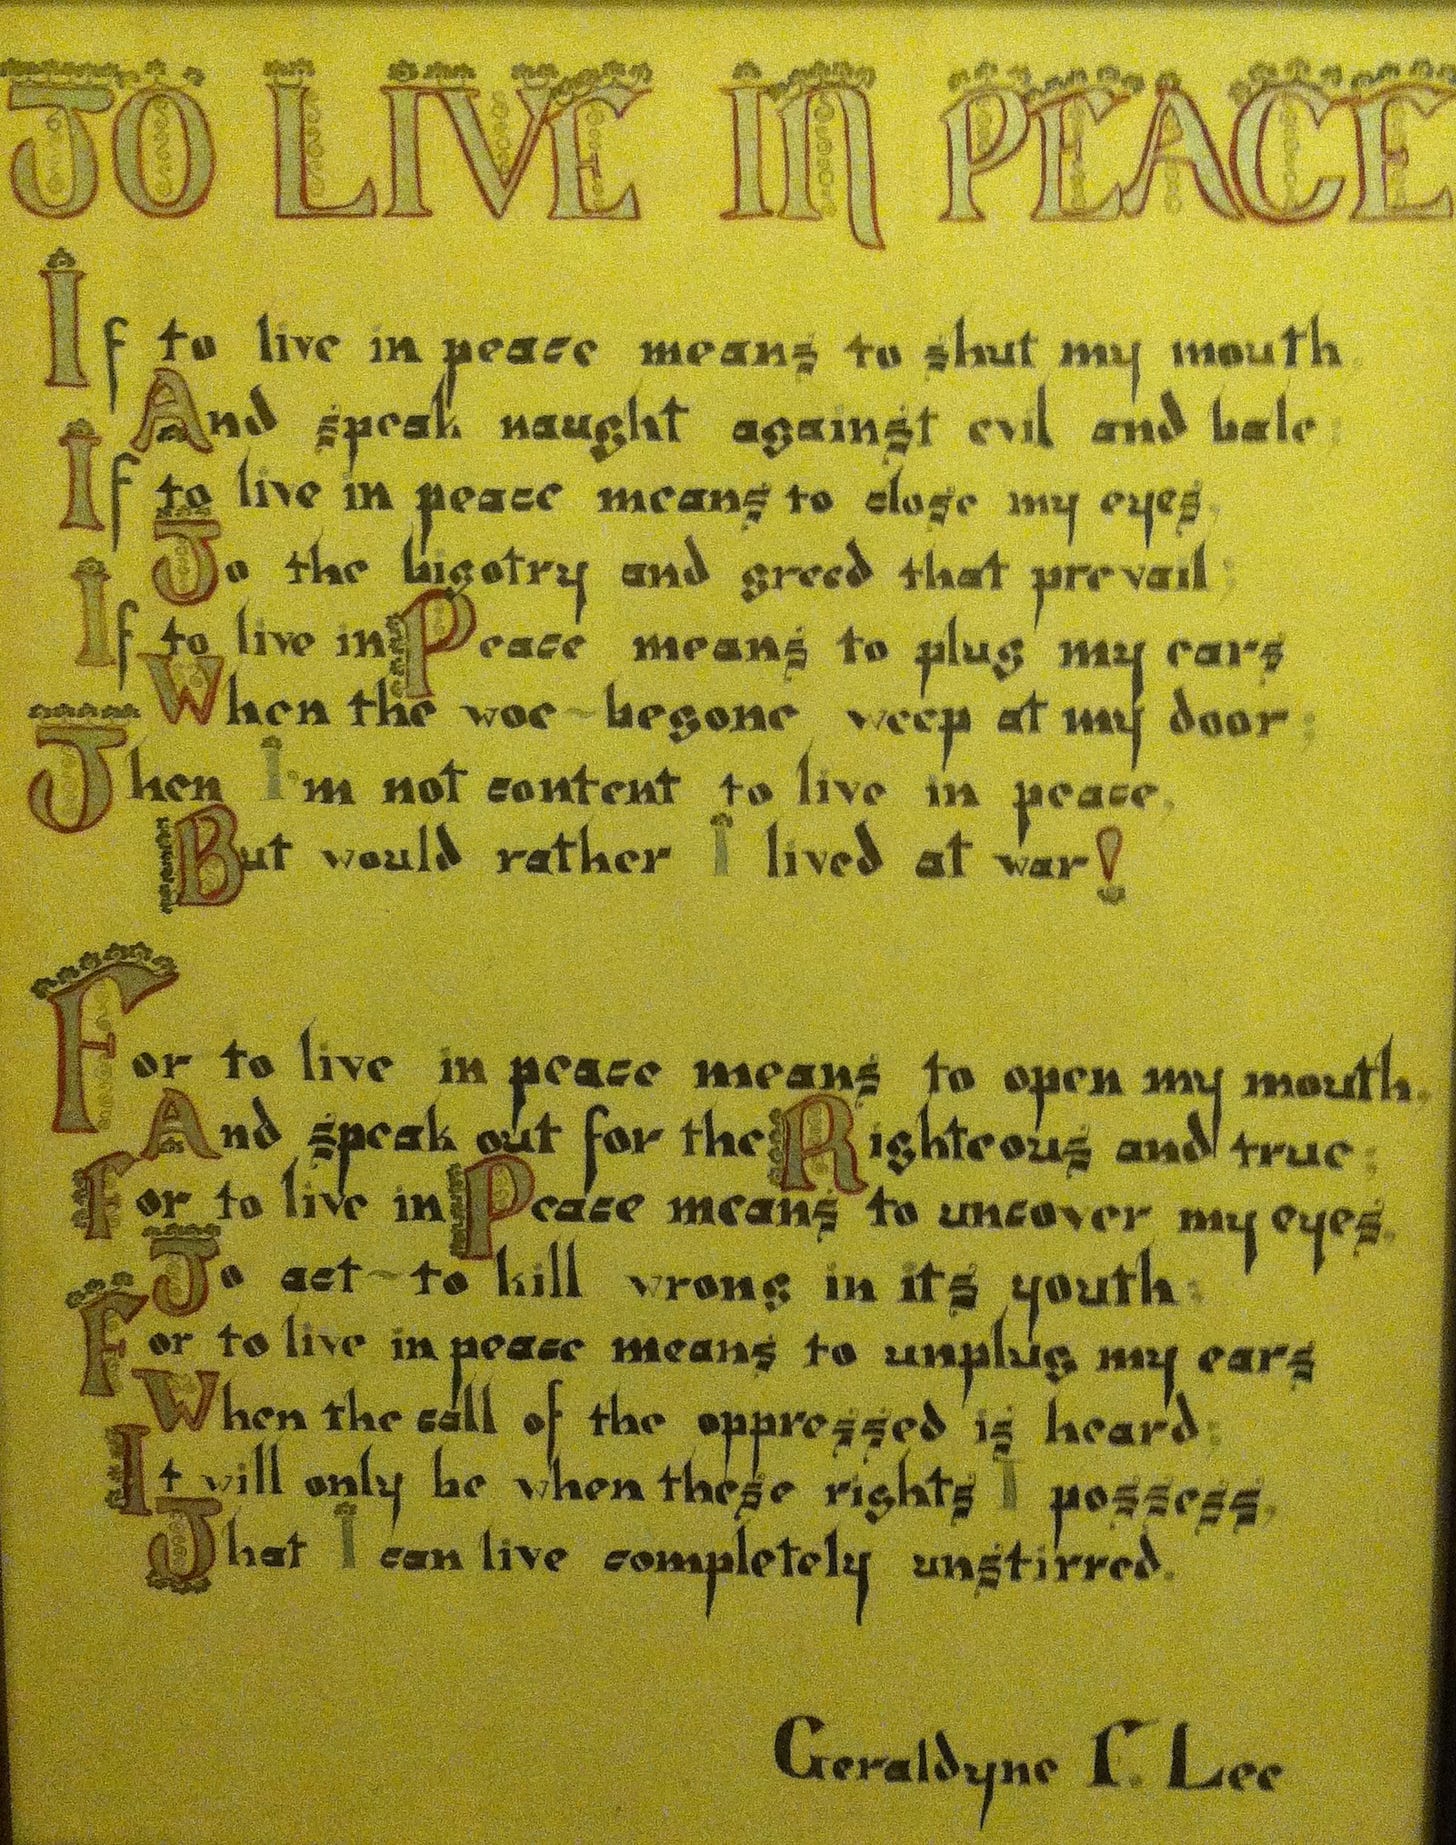 TO LIVE IN PEACE
If to live in peace means to shut my mouth,
And speak naught against evil and bale;
If to live in peace means to close my eyes,
To the bigotry and greed that prevail;
If to live in Peace means to plug my ears
When the woe-begone weep at my door;
Then I'm not content to live in peace,
But would rather I lived at war!
For to live in peace means to open my mouth,
And speak out for the Righteous and true;
For to live in Peace means to uncover my eyes,
To act-to kill wrong in its youth;
For to live in peace means to unplug my ears
When the call of the oppressed is heard;
It will only be when these rights I possess,
That I can live completely unstirred.
Geraldyne Lee